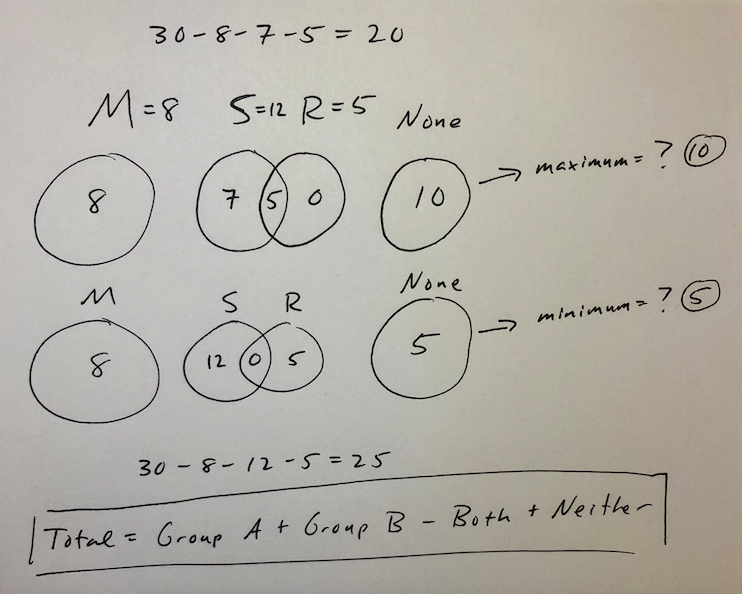 30-8-7-5=20
M=8 S=12 R=5 None
8 7 5 0 10 → maximum = ? 10
M S R None
8 12 0 5 5 → minimum = ? 5
30-8-12-5=25
Total = Group A + Group B - Both + Neither